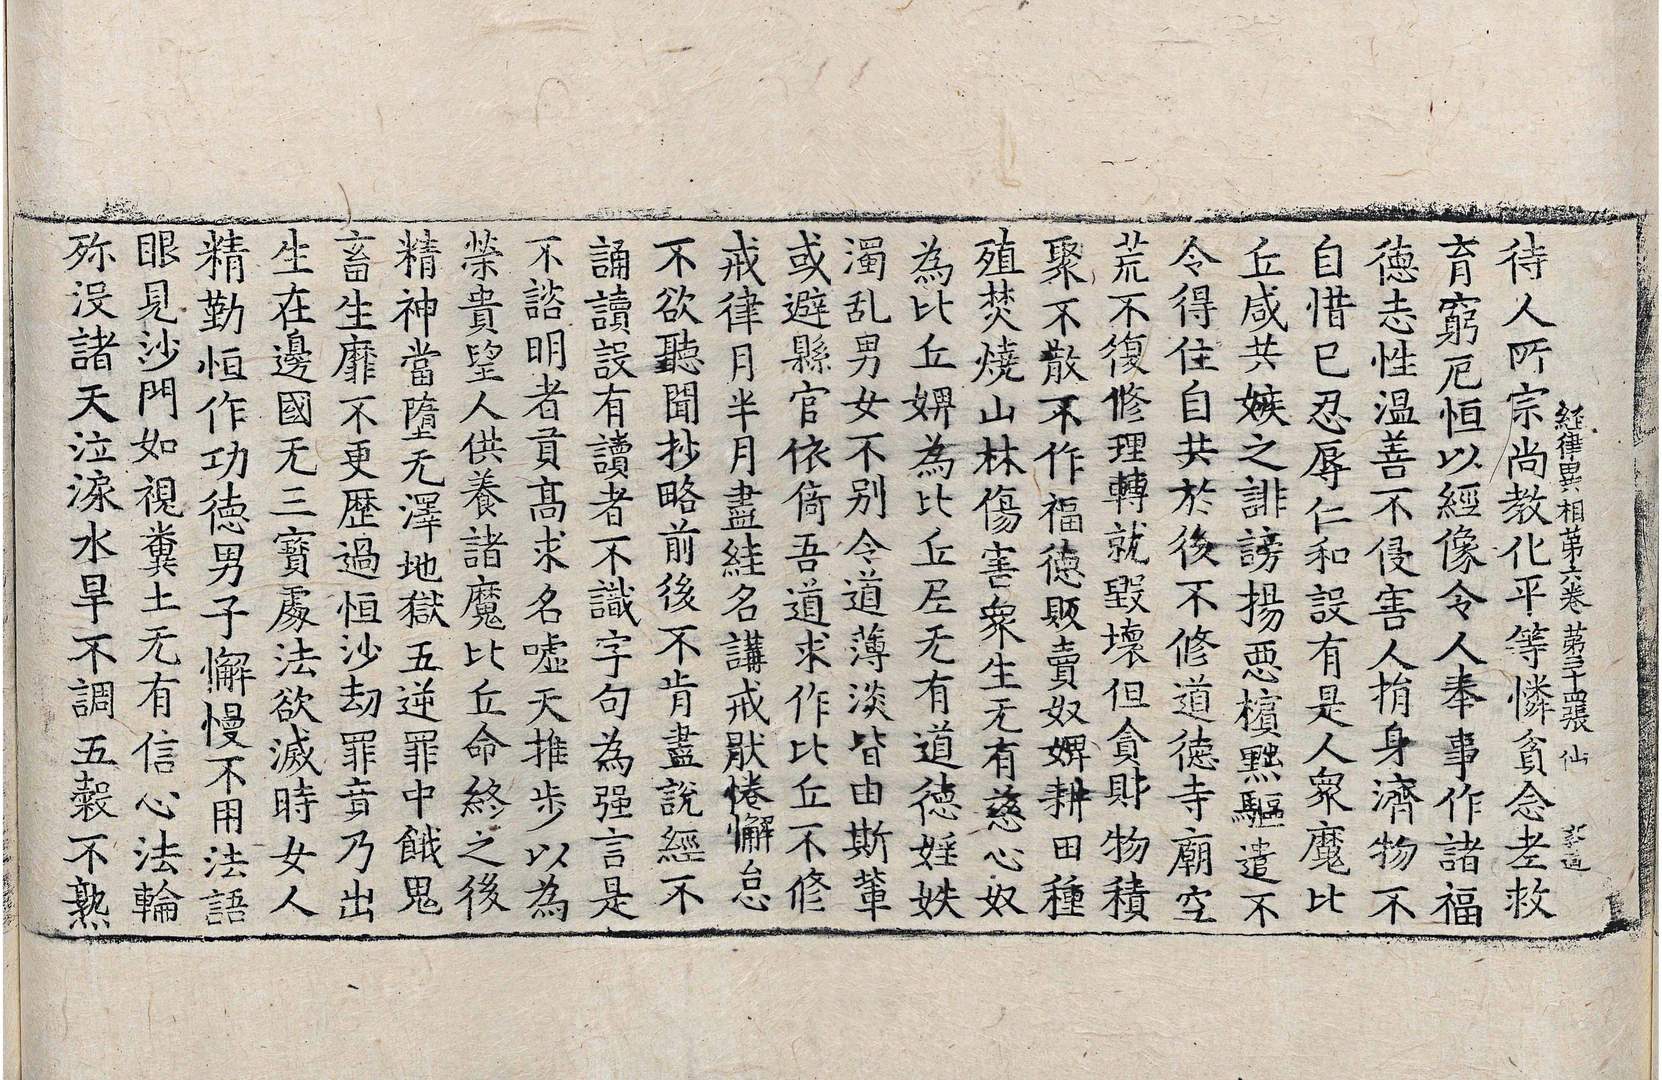 經律異相第六卷 第三十四張 仙
待人所宗尚教化平等憐貧念老救
育窮厄恒以經像令人奉事作諸福
德志性温善不侵害人捐身濟物不
自惜已忍辱仁和設有是人衆魔比
丘咸共嫉之誹謗揚惡擯黜驅遣不
令得住自共於後不修道德寺廟空
荒不復修理轉就毀壞但貪財物積
聚不散不作福德販賣奴婢耕田種
殖焚燒山林傷害衆生无有慈心奴
為比丘婢為比丘尼无有道德婬妷
濁乱男女不别令道薄淡皆由斯輩
或避縣官依倚吾道求作比丘不修
戒律月半月盡雖名講戒猒惓懈怠
不欲聽聞抄略前後不肯盡說經不
誦讀設有讀者不識字句為强言是
不諮明者貢高求名噓天推步以為
榮貴望人供養諸魔比丘命終之後
精神當墮无澤地獄五逆罪中餓鬼
畜生靡不更歷過恒沙劫罪竟乃出
生在邊國无三寶處法欲滅時女人
精勤恒作功德男子懈慢不用法語
眼見沙門如視糞土无有信心法輪
殄没諸天泣淚水旱不調五穀不熟